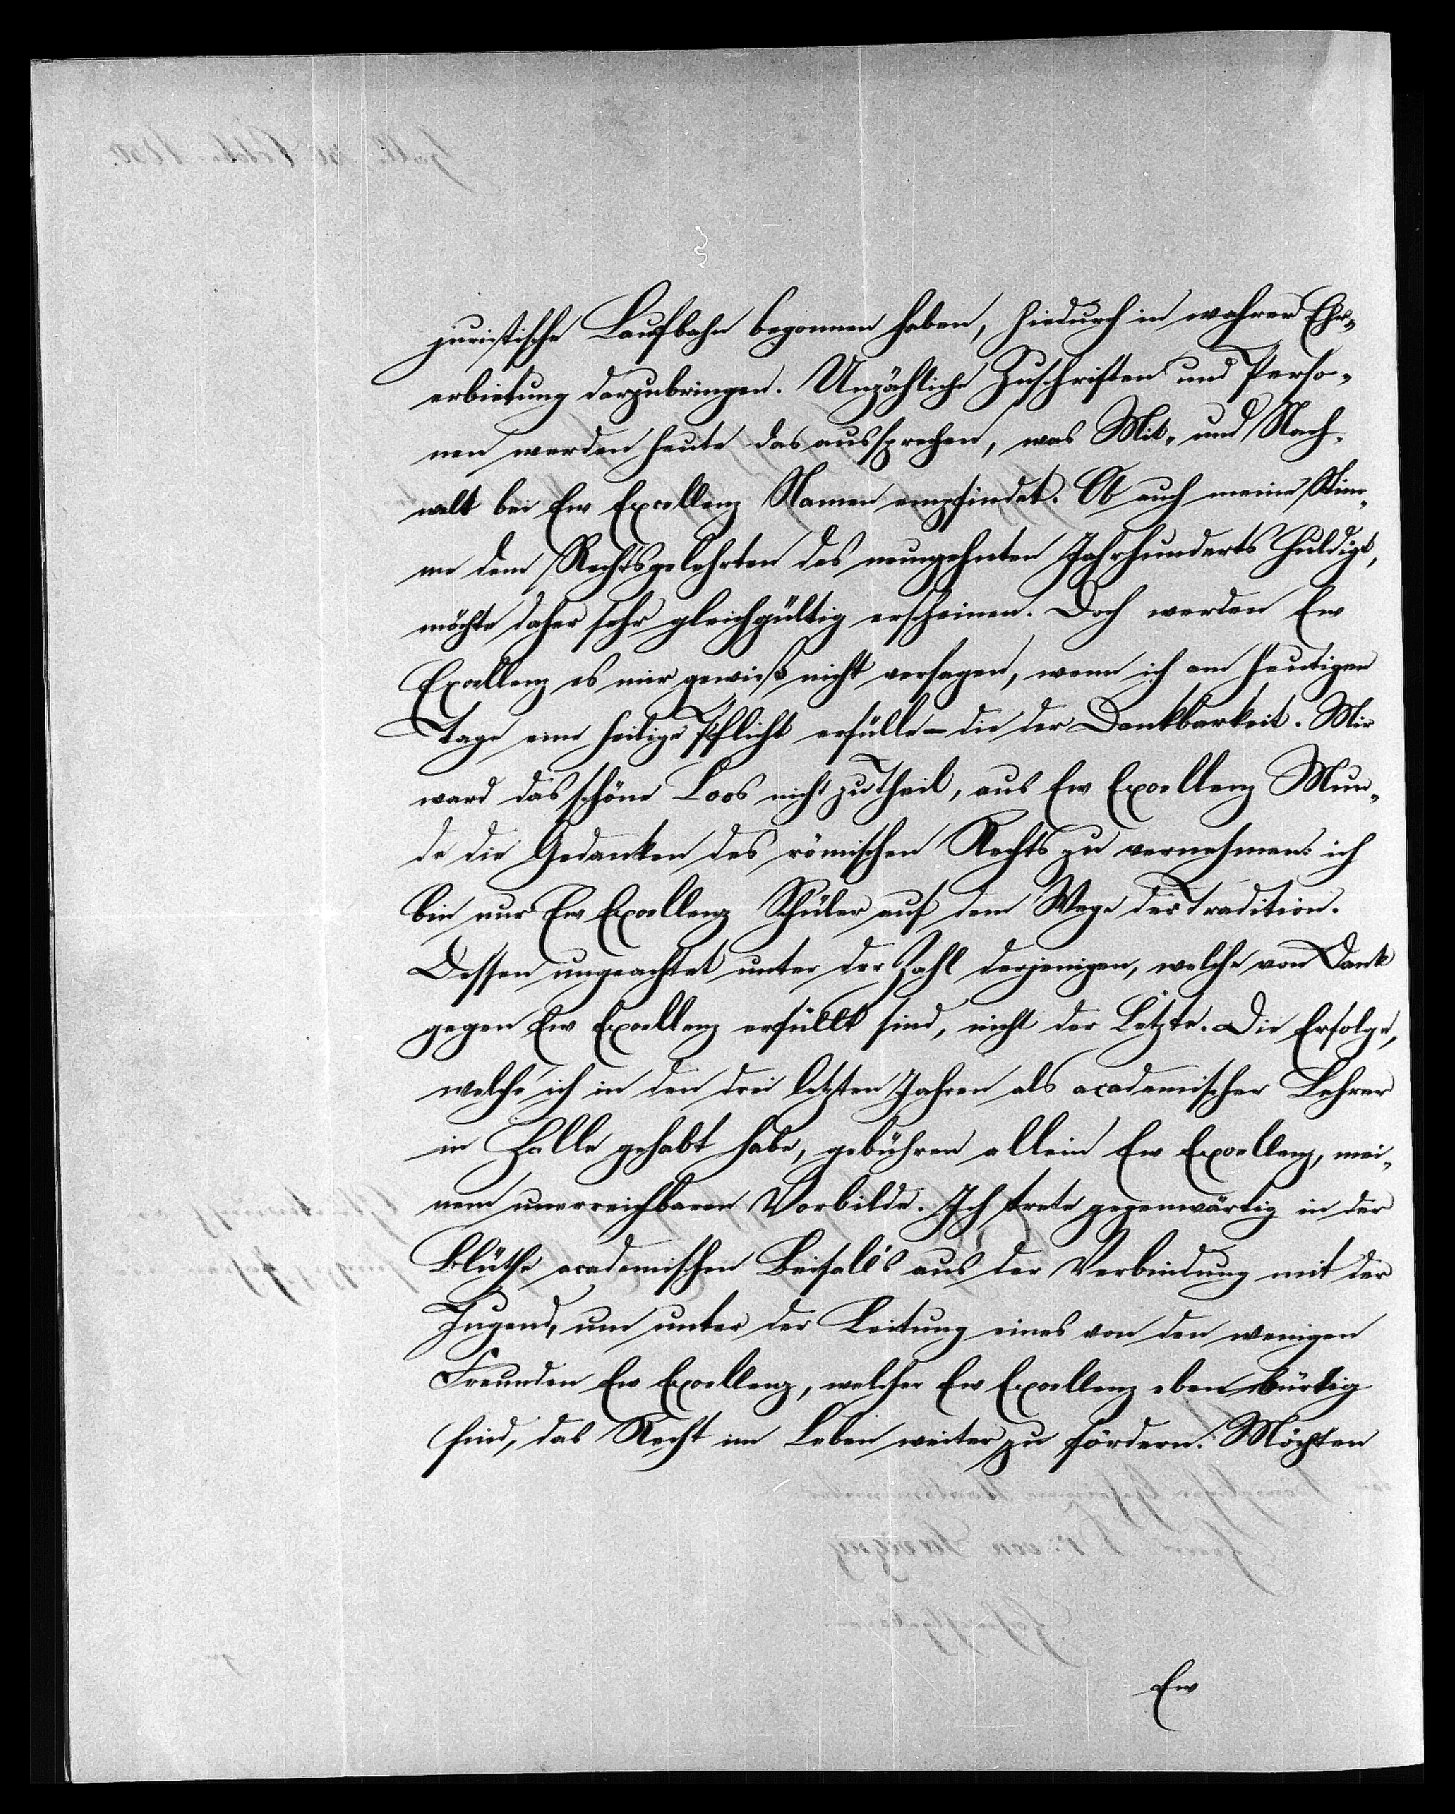 juristische Laufbahn begonnen haben, hiedurch in wahrer Ehr-
erbietung darzubringen. Unzähliche Zuschriften und Perso-
nen werden heute das aussprechen, was Mit- und Nach-
welt bei Ew Excellenz Namen empfindet. Ob auch meine Stim-
me dem Rechtsgelehrten des neunzehnten Jahrhunderts huldigt,
möchte daher sehr gleichgültig erscheinen. Doch werden Ew
Excellenz es mir gewiß nicht versagen, wenn ich am heutigen
Tage eine heilige Pflicht erfülle – die der Dankbarkeit. Mir
ward das schöne Loos nicht zu Theil, aus Ew Excellenz Mun-
de die Gedanken des römischen Rechts zu vernehmen: ich
bin nur Ew Excellenz Schüler auf dem Wege der Tradition.
Dessen ungeachtet unter der Zahl derjenigen, welche von Dank
gegen Ew Excellenz erfüllt sind, nicht der Letzte. Die Erfolge,
welche ich in den drei letzten Jahren als academischer Lehrer
in Halle gehabt habe, gebühren allein Ew Excellenz, mei-
nem unerreichbaren Vorbilde. Ich trete gegenwärtig in der
Blüthe academischen Beifalls aus der Verbindung mit der
Jugend, um unter der Leitung eines von den wenigen
Freunden Ew Excellenz, welcher Ew Excellenz eben bürtig
sind, das Recht im Leben weiter zu fördern. Möchten
Ew